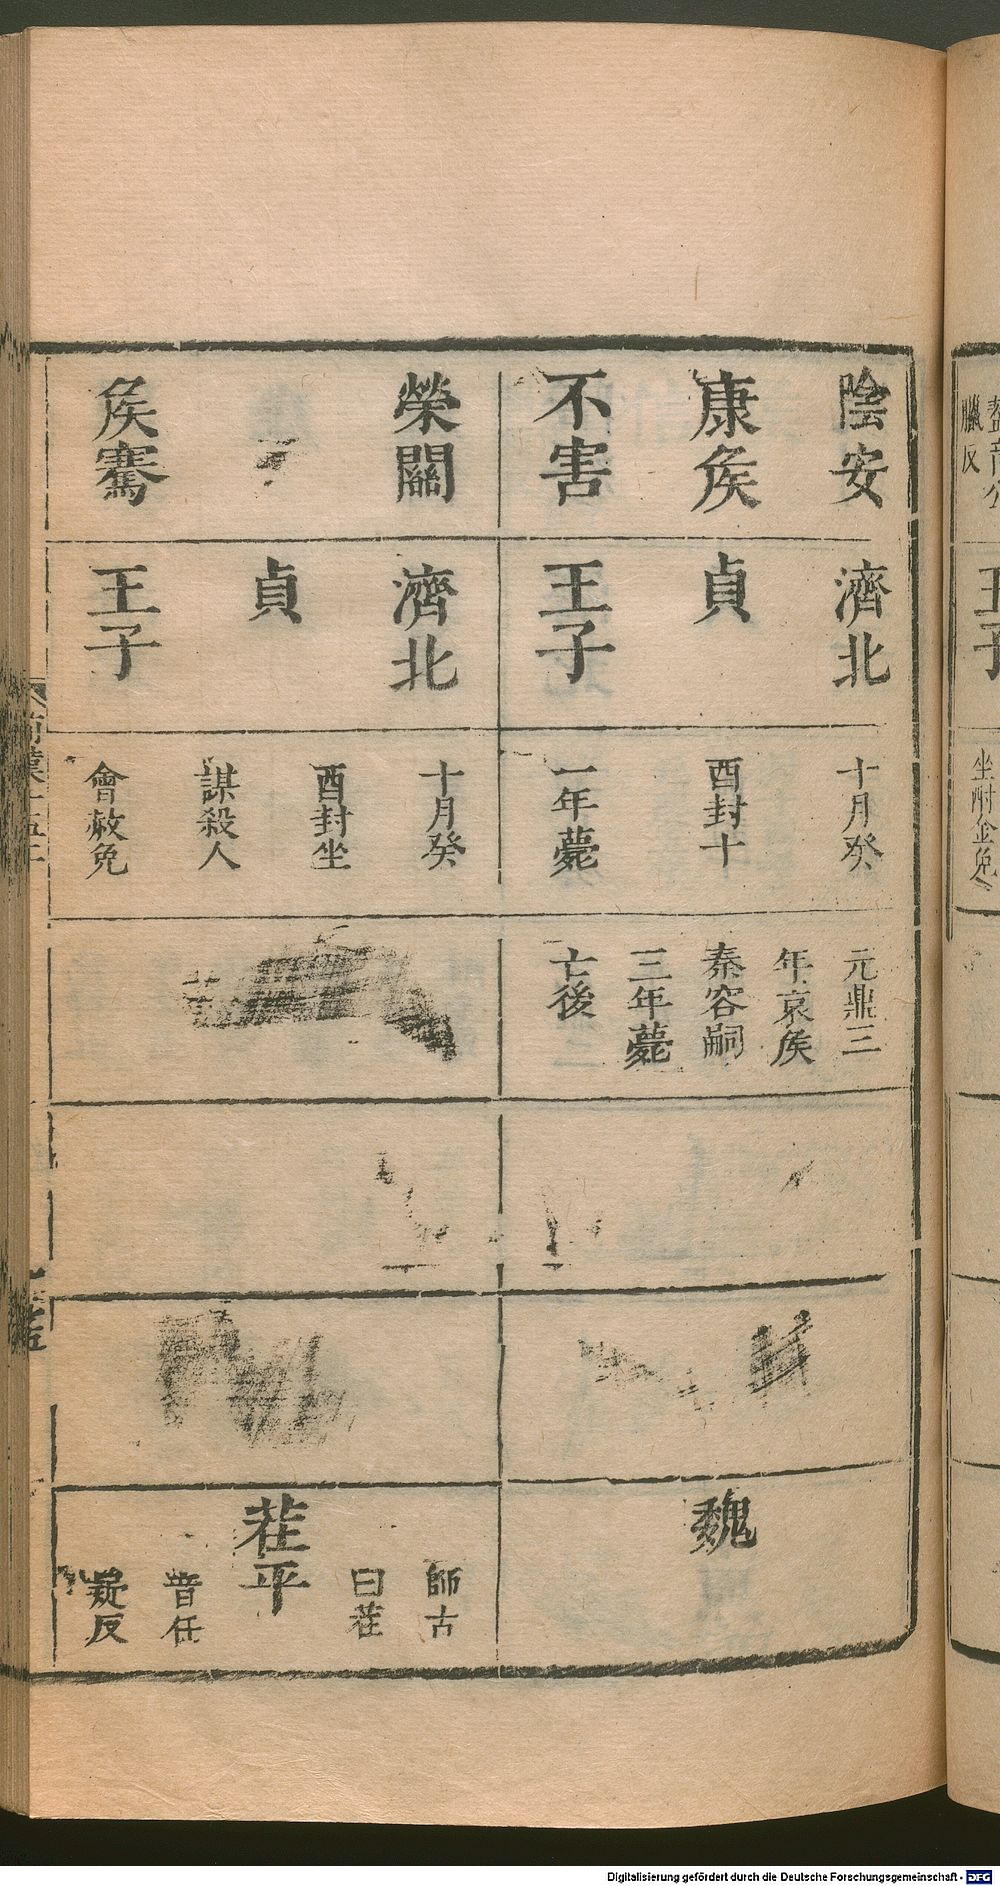 陰安
康矦
不害
濟北
貞
王子
十月癸
酉封十
一年薨
元鼎三
年哀矦
秦容嗣
三年薨
亡後
魏
榮關
矦騫
濟北
貞
王子
十月癸
酉封坐
謀殺人
會赦免
茬平
師古
曰茬
音仕
疑反
王子
坐酎金免
臘反
Digitalisierung gefördert durch die Deutsche Forschungsgemeinschaft - DFG